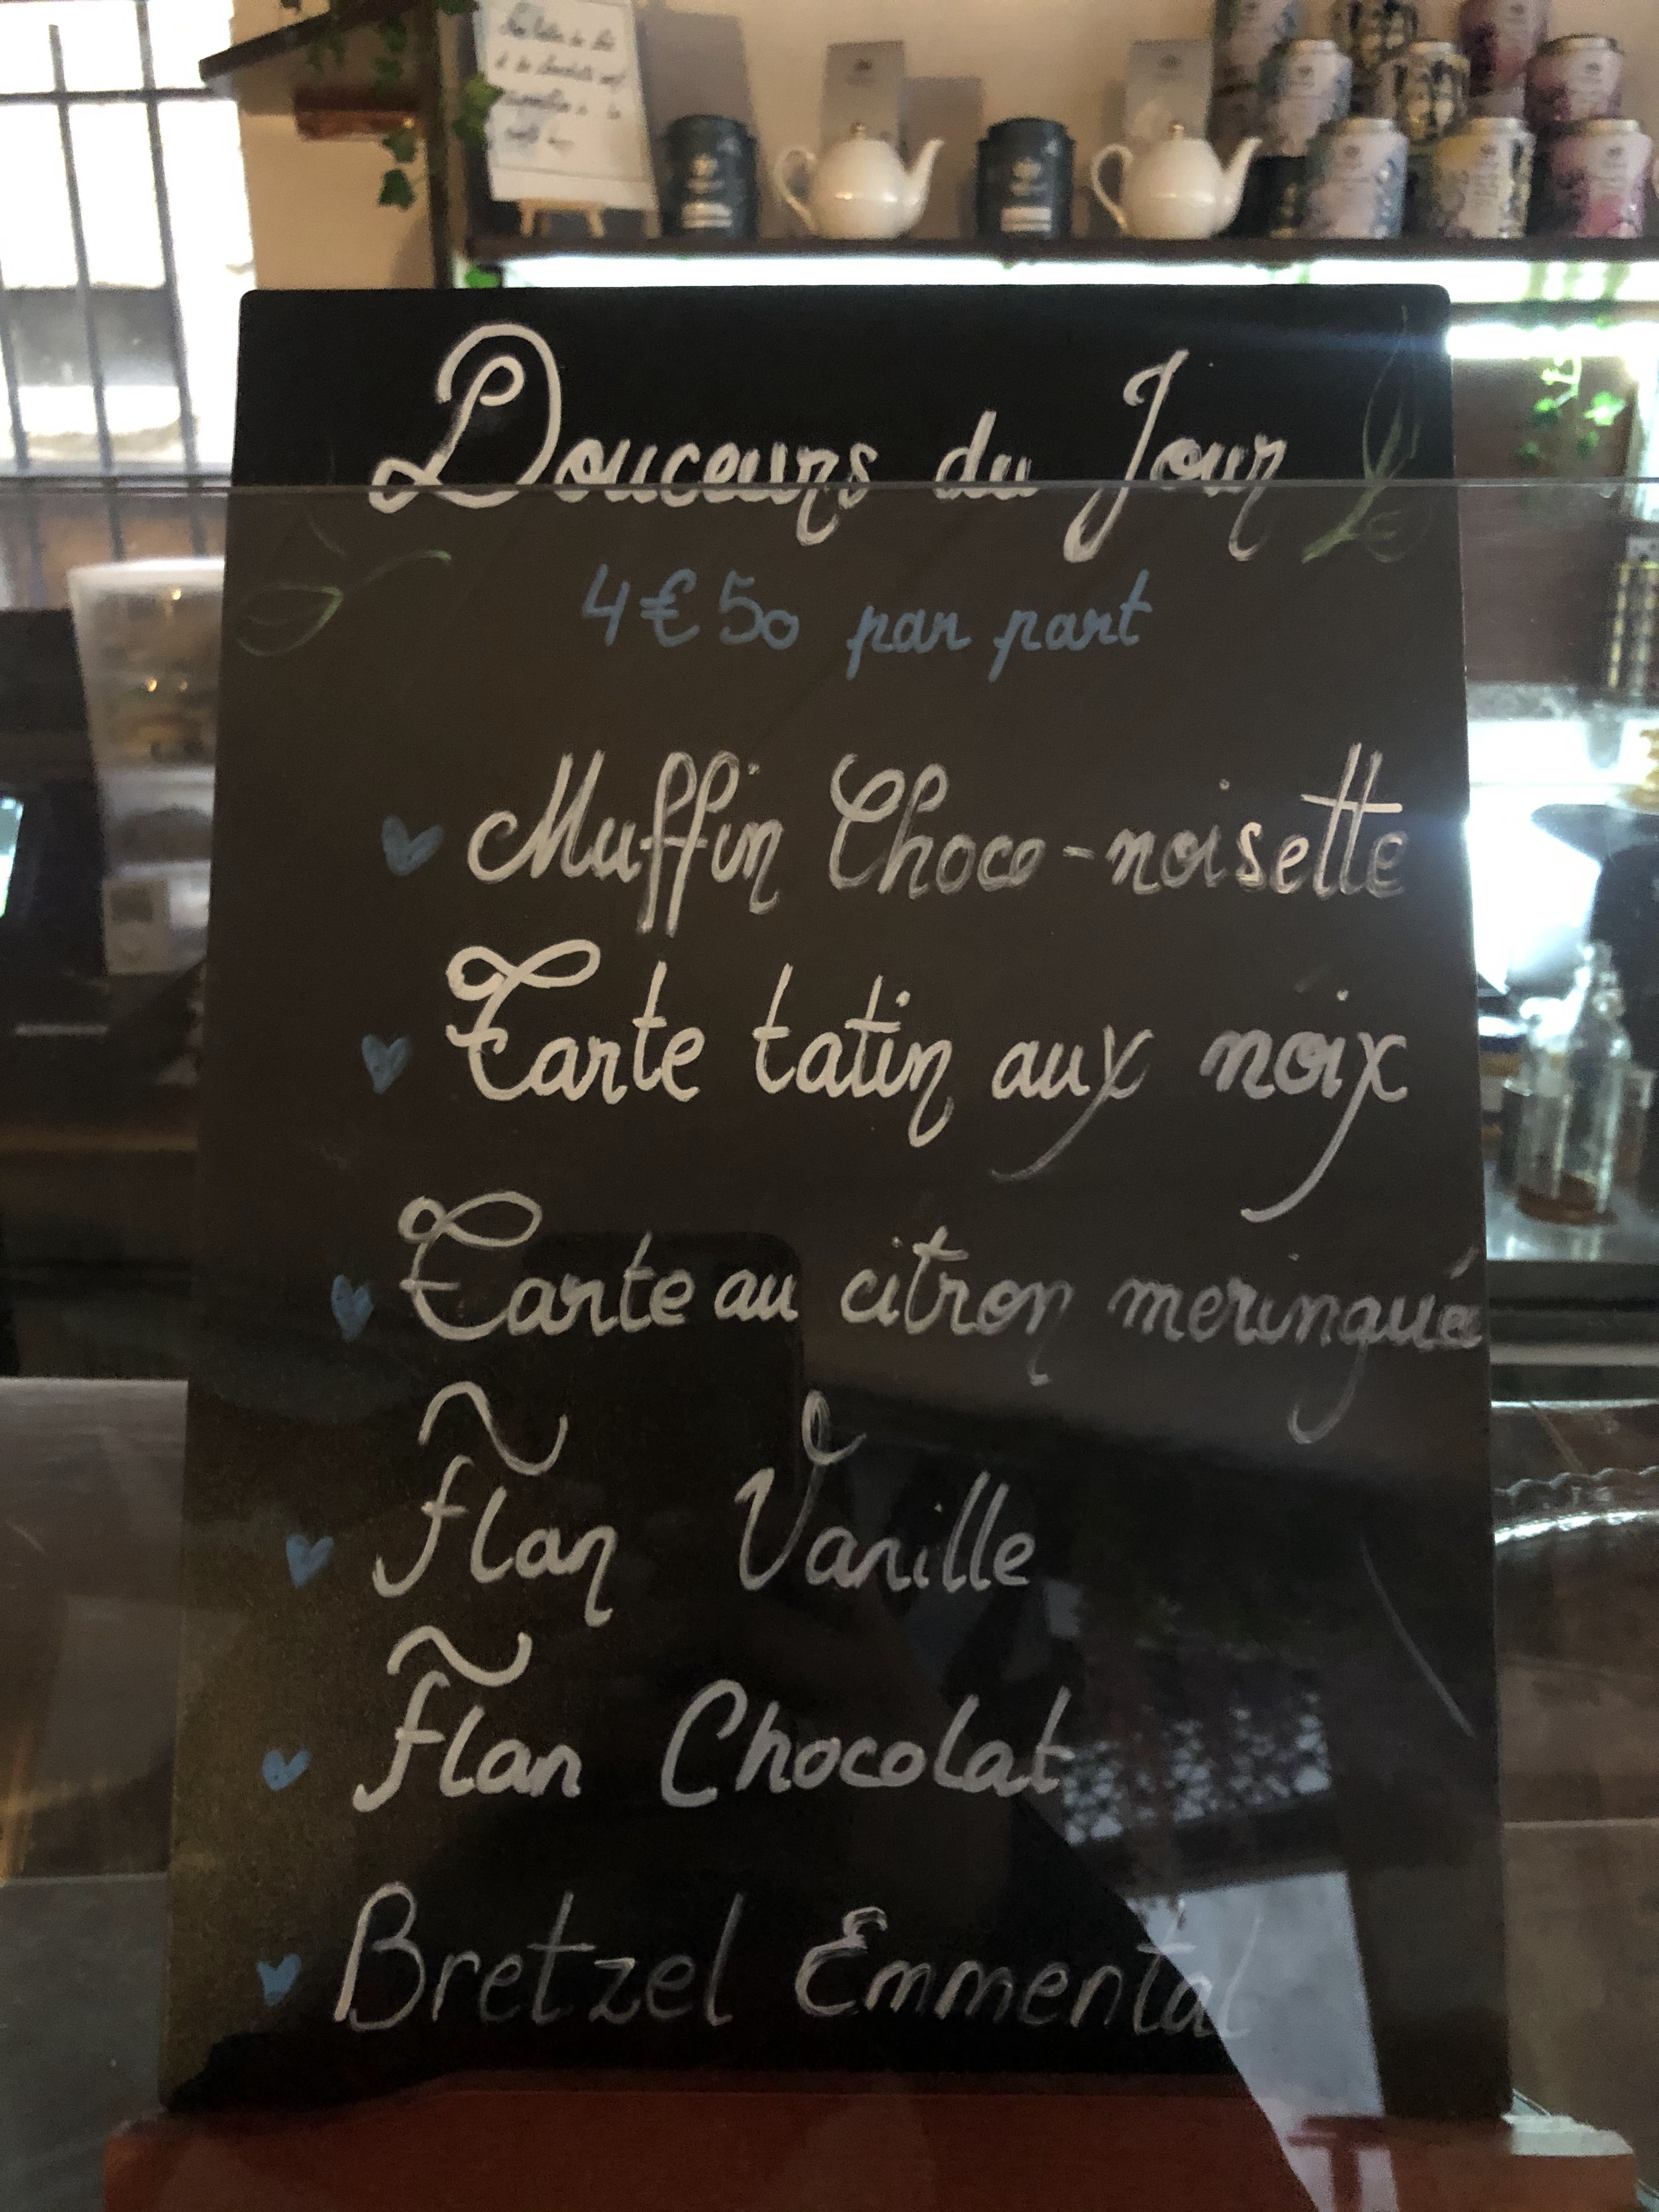 Douceurs du Jour
4€50 par part
Muffin Choco-noisette
Tarte tatin aux noix
Tarte au citron meringuée
Flan Vanille
Flan Chocolat
Bretzel Emmental